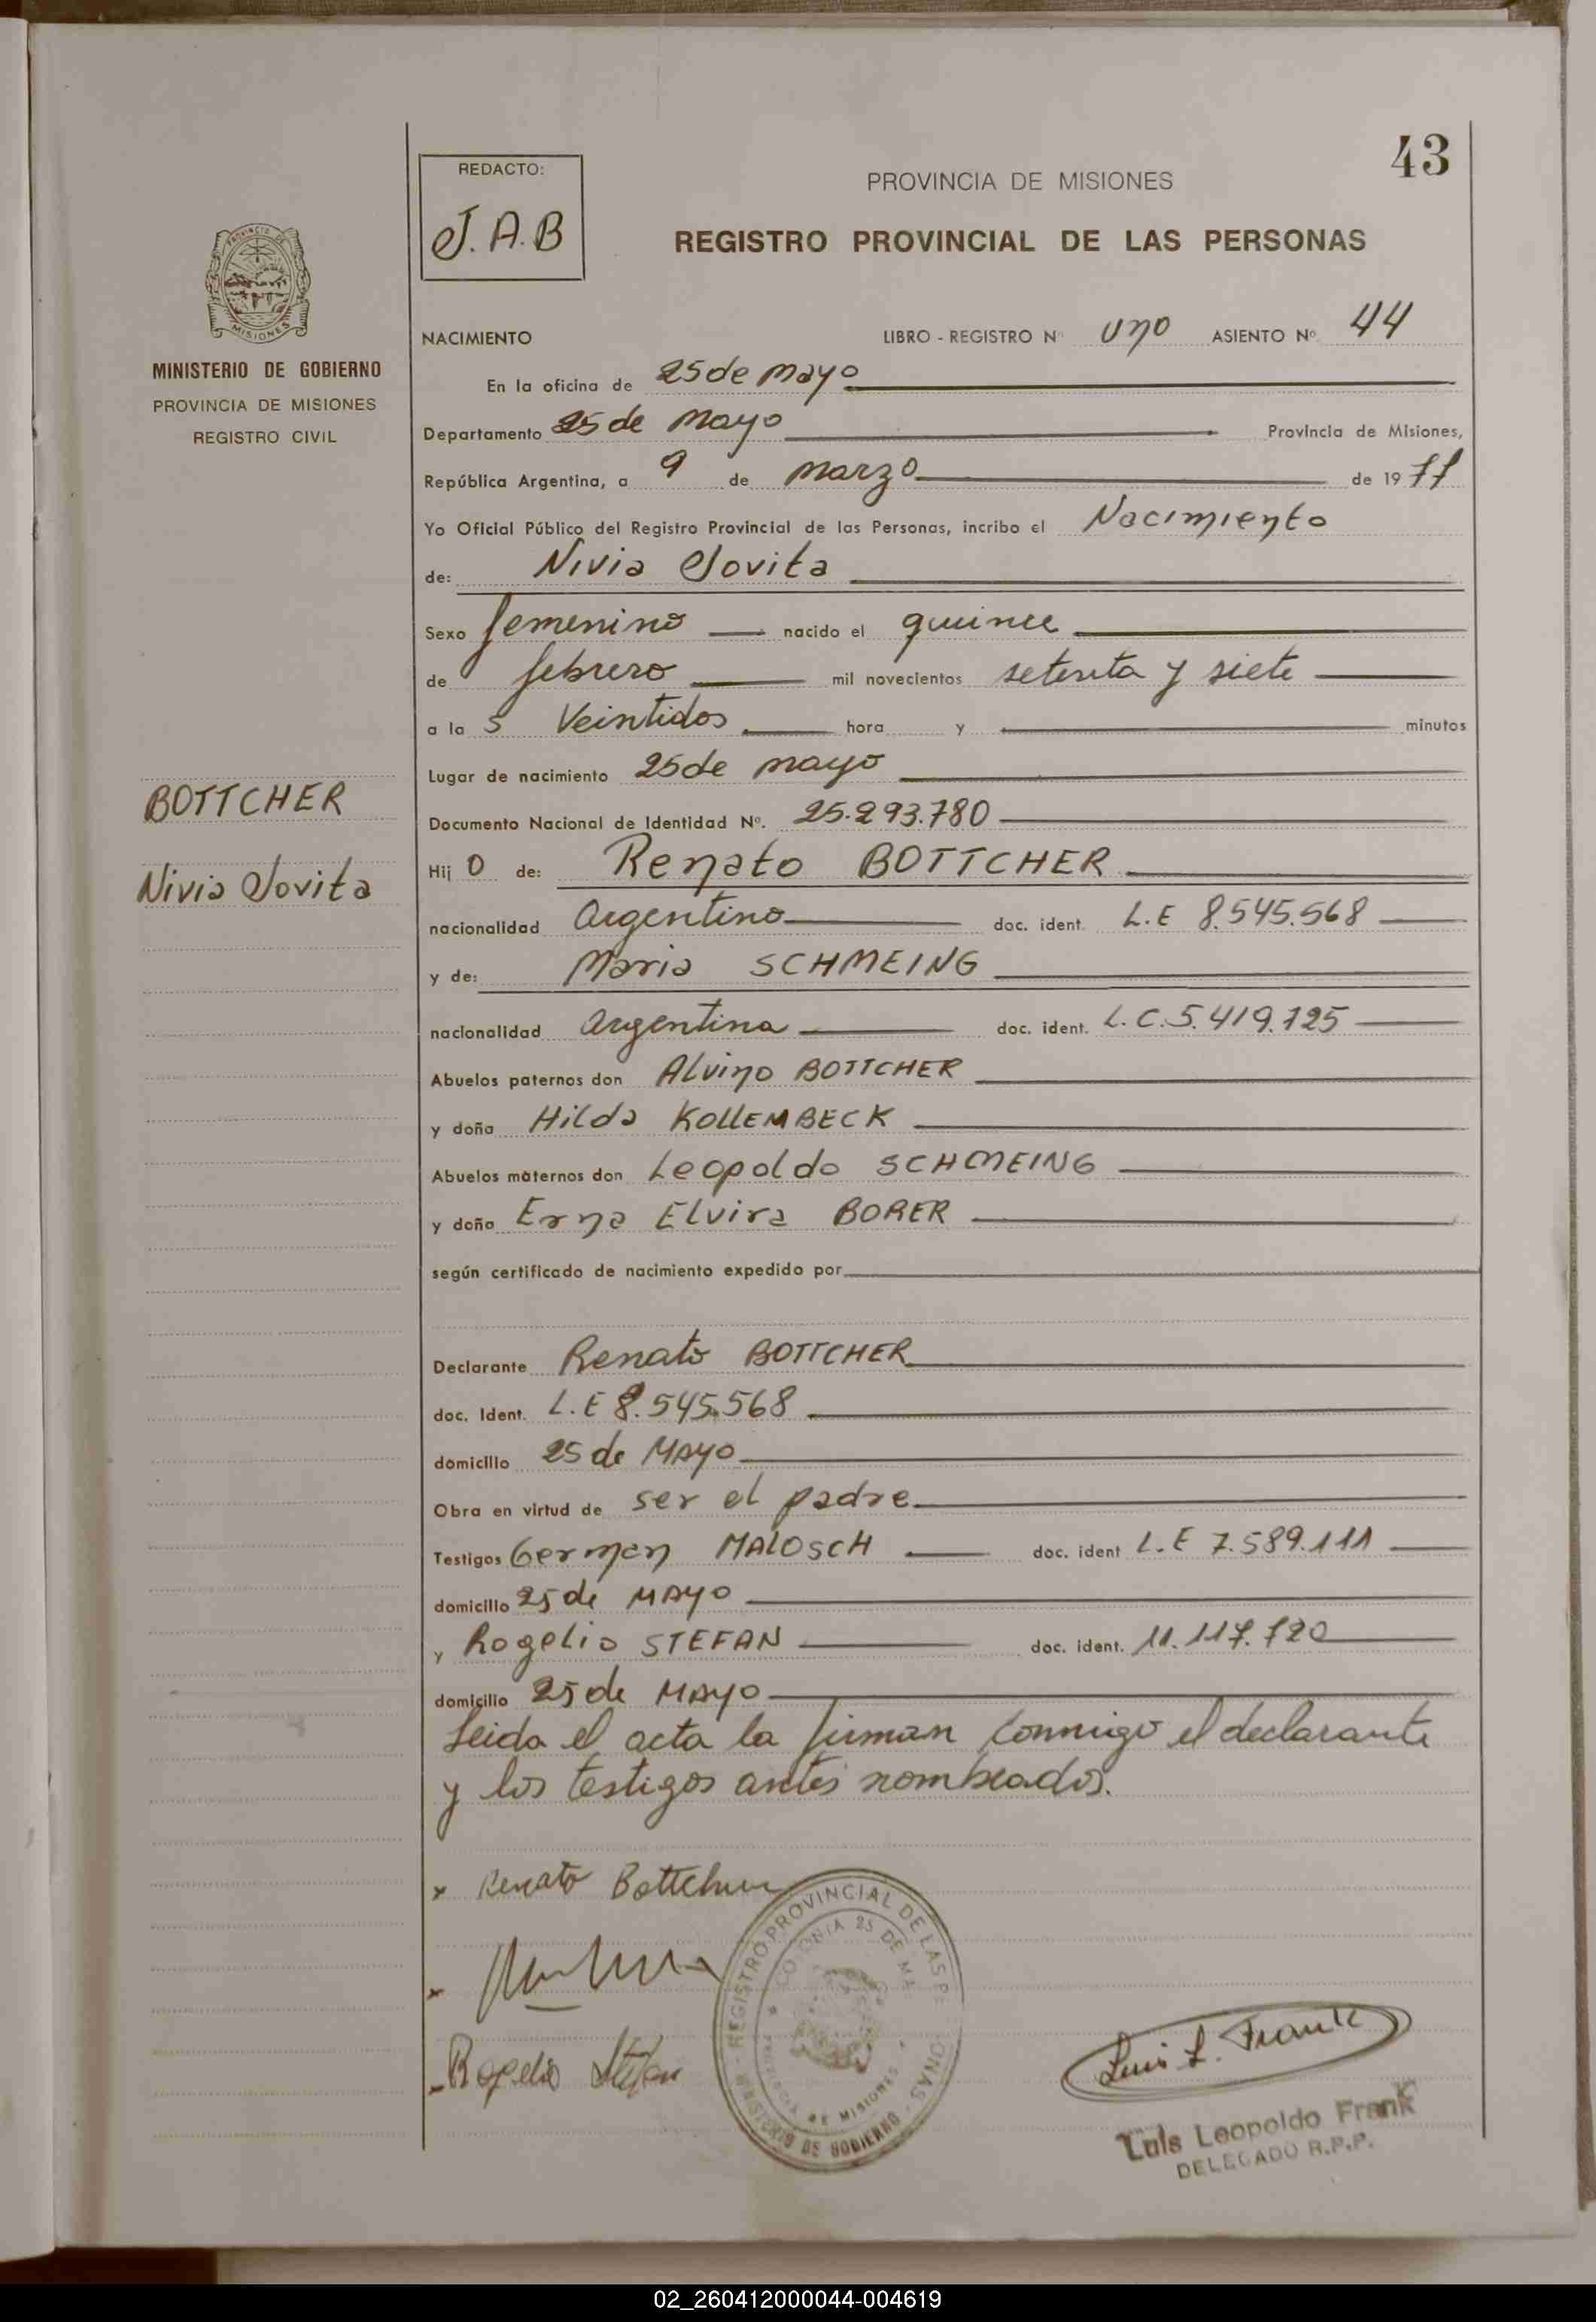 43
REDACTO:
J.A.B
PROVINCIA DE MISIONES
REGISTRO PROVINCIAL DE LAS PERSONAS
PROVINCIA DE
MISIONES
MINISTERIO DE GOBIERNO
PROVINCIA DE MISIONES
REGISTRO CIVIL
NACIMIENTO LIBRO - REGISTRO Nº uno ASIENTO Nº 44
En la oficina de 25 de mayo
Departamento 25 de Mayo Provincia de Misiones,
República Argentina, a 9 de marzo de 1977
Yo Oficial Público del Registro Provincial de las Personas, incribo el Nacimiento
de: Nivia Jovita
Sexo femenino nacido el quince
de febrero mil novecientos setenta y siete
a la s Veintidos hora y minutos
Lugar de nacimiento 25 de mayo
BOTTCHER
Nivia Jovita
Documento Nacional de Identidad Nº. 25.293.780
Hij o de: Renato BOTTCHER
nacionalidad Argentino doc. ident. L.E 8.545.568
y de: Maria SCHMEING
nacionalidad argentina doc. ident. L.C.5.419.125
Abuelos paternos don Alvino BOTTCHER
y doña Hilda KOLLEMBECK
Abuelos maternos don Leopoldo SCHMEING
y doña Erna Elvira BORER
según certificado de nacimiento expedido por
Declarante Renato BOTTCHER
doc. Ident. L.E 8.545.568
domicilio 25 de MAyo
Obra en virtud de ser el padre
Testigos German MALOSCH doc. ident L.E 7.589.111
domicilio 25 de MAyo
y Rogelio STEFAN doc. ident. 11.117.720
domicilio 25 de MAyo
Leida el acta la firman conmigo el declarante
y los testigos antes nombrados.
x Renato Bottcher
x
- Rogelio Stefan
REGISTRO PROVINCIAL DE LAS PERSONAS - MINISTERIO DE GOBIERNO -
COLONIA 25 DE MA
PROVINCIA DE MISIONES
Luis L. Frank
Luis Leopoldo Frank
DELEGADO R.P.P.
02_260412000044-004619